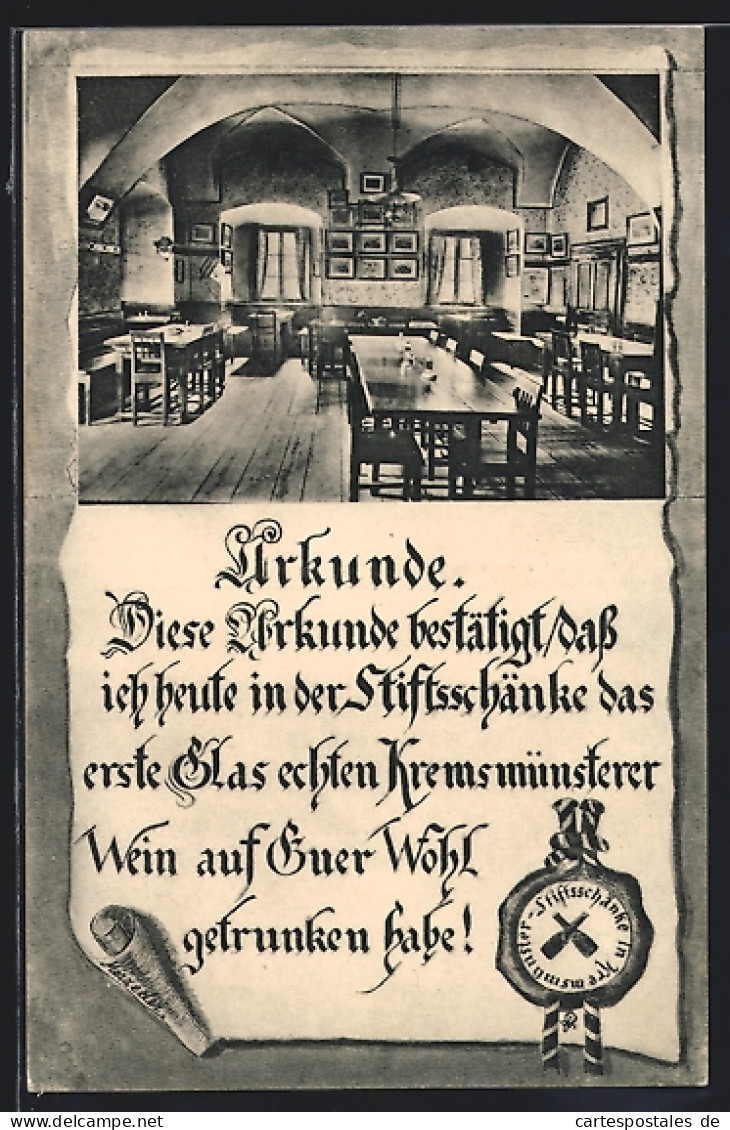 Urkunde.
Diese Urkunde bestätigt, daß
ich heute in der Stiftsschänke das
erste Glas echten Kremsmünsterer
Wein auf Euer Wohl
getrunken habe!
Stiftsschänke in Kremsmünster-
www.delcampe.net
cartespostales de